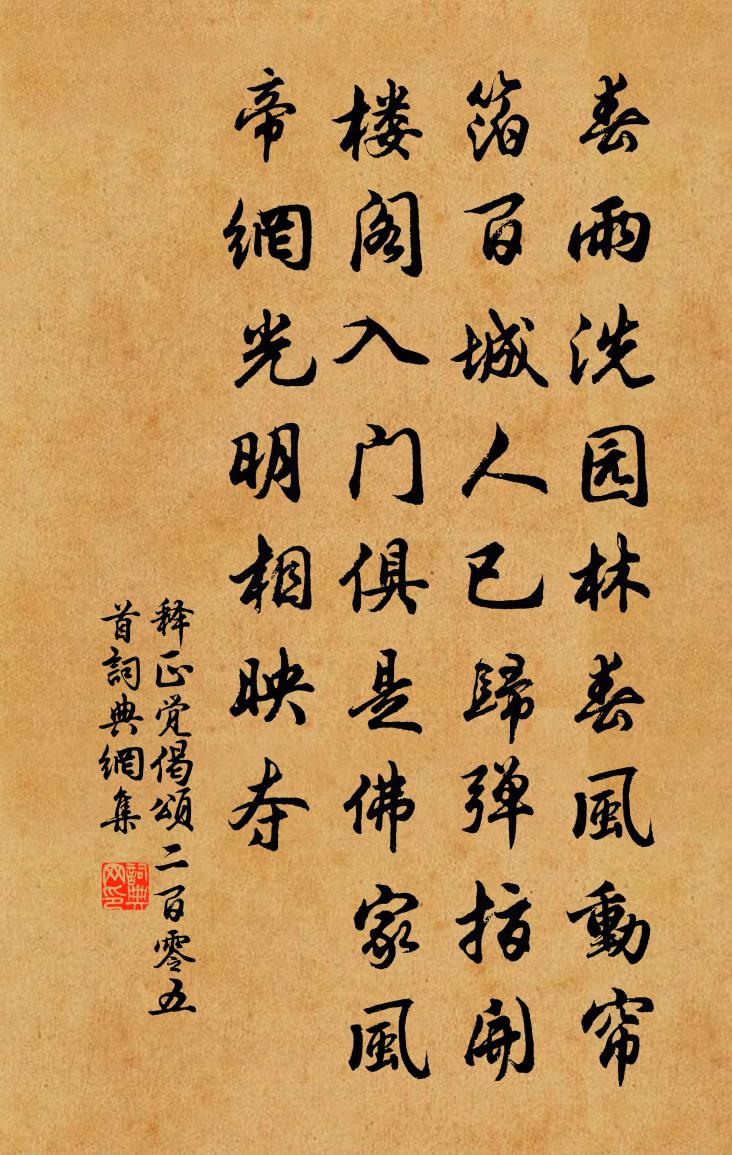 春雨洗园林春風動帘
箔百城人已歸弹指開
楼阁入门俱是佛家風
帝網光明相映夺
释正觉偈頌二百零五
首詞典網集
詞典網印